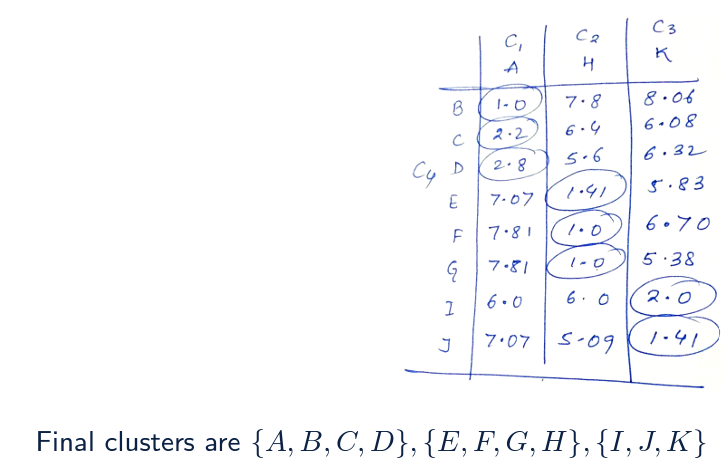 C₁ C₂ C₃
A H K
B 1.0 7.8 8.06
C 2.2 6.4 6.08
C₄ D 2.8 5.6 6.32
E 7.07 1.41 5.83
F 7.81 1.0 6.70
G 7.81 1.0 5.38
I 6.0 6.0 2.0
J 7.07 5.09 1.41
Final clusters are {A, B, C, D}, {E, F, G, H}, {I, J, K}